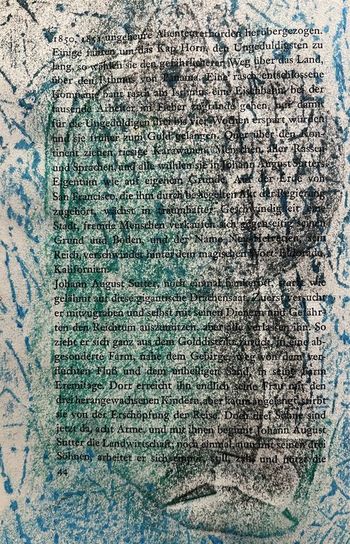 1850, 1851 ungeheure Abenteurerhorden herübergezogen.
Einige hatten um das Kap Horn, den Ungeduldigsten zu
lang, so wählen sie den gefährlicheren Weg über das Land,
über den Isthmus von Panama. Eine rasch entschlossene
Kompanie baut rasch am Isthmus eine Eisenbahn, bei der
tausende Arbeiter im Fieber zugrunde gehen, nur damit
für die Ungeduldigen drei bis vier Wochen erspart würden
und sie früher zum Gold gelangen. Quer über den Kon-
tinent ziehen riesige Karawanen, Menschen aller Rassen
und Sprachen, und alle wühlen sie in Johann August Suters
Eigentum wie auf eigenem Grunde. Auf der Erde von
San Francisco, die ihm durch besiegelten Akt der Regierung
zugehört, wächst in traumhafter Geschwindigkeit eine
Stadt, fremde Menschen verkaufen sich gegenseitig seinen
Grund und Boden, und der Name Neu-Helvetien, sein
Reich, verschwindet hinter dem magischen Wort: Eldorado,
Kalifornien.
Johann August Sutter, noch einmal bankerott, starrt wie
gelähmt auf diese gigantische Drachensaat. Zuerst versucht
er mitzugraben und selbst mit seinen Dienern und Gefähr-
ten den Reichtum auszunützen, aber alle verlassen ihn. So
zieht er sich ganz aus dem Golddistrikt zurück, in eine ab-
gesonderte Farm, nahe dem Gebirge, weg von dem ver-
fluchten Fluß und dem unheiligen Sand, in seine Farm
Eremitage. Dort erreicht ihn endlich seine Frau mit den
drei herangewachsenen Kindern, aber kaum angelangt, stirbt
sie von der Erschöpfung der Reise. Doch drei Söhne sind
jetzt da, acht Arme, und mit ihnen beginnt Johann August
Sutter die Landwirtschaft; noch einmal, nun mit seinen drei
Söhnen, arbeitet er sich empor, still, zäh, und nützt die
44